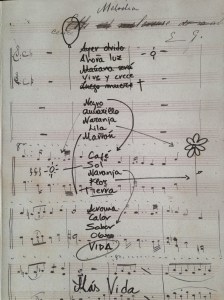 Melodia
Ayer olvido
Ahora luz
Mañana
Vive y crece
Luego muere
Negro
Amarillo
Naranja
Lila
Marrón
Café
Sol
Naranja
Flor
Tierra
Aroma
Calor
Sabor
Olor
VIDA
Más Vida